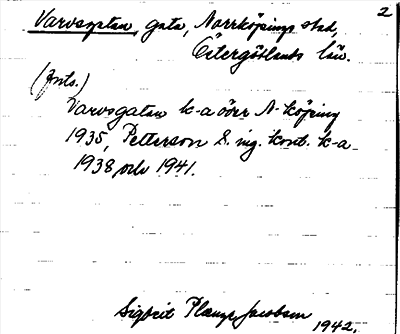 2
Varvsgatan, gata, Norrköpings stad,
Östergötlands län.
(Ints.)
Varvsgatan k-a över N-köping
1935, Petterson S. ing. kont. k-a
1938 och 1941.
Sigbrit Plænge Jacobson
1942.